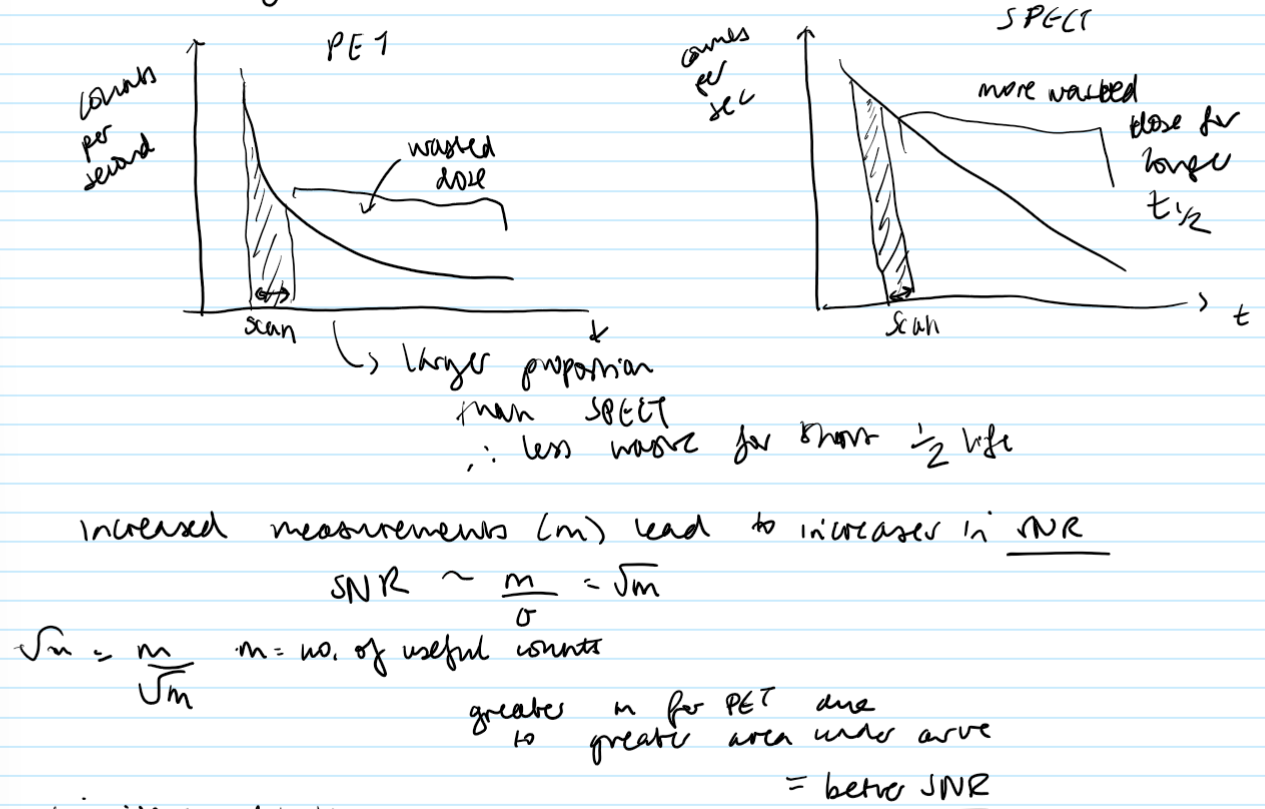 PET
counts
per
second
wasted
dose
scan
t
SPECT
counts
per
sec
more wasted
dose for
longer
t 1/2
scan
t
↳ larger proportion
than SPECT
∴ less waste for short 1/2 life
increased measurements (m) lead to increases in SNR
SNR ~ m/σ = √m
√m = m/√m m = no. of useful counts
greater m for PET due
to greater area under curve
= better SNR